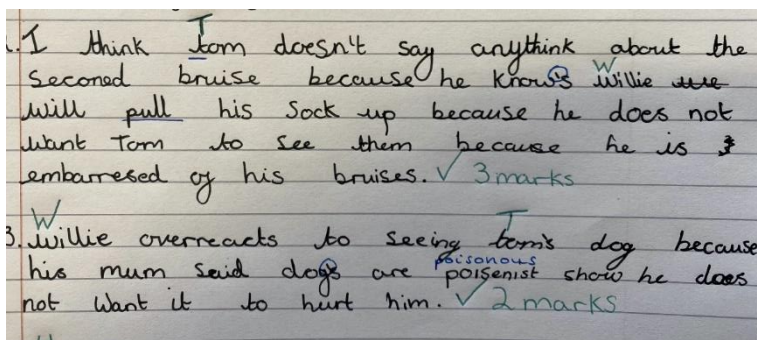 T
1. I think tom doesn't say anythink about the
W
seconed bruise because he know's willie
will pull his sock up because he does not
want Tom to see them because he is
embarresed of his bruises. ✓ 3 marks
W T
3. willie overreacts to seeing tom's dog because
poisonous
his mum said dog's are poisenist show he does
not want it to hurt him. ✓ 2 marks